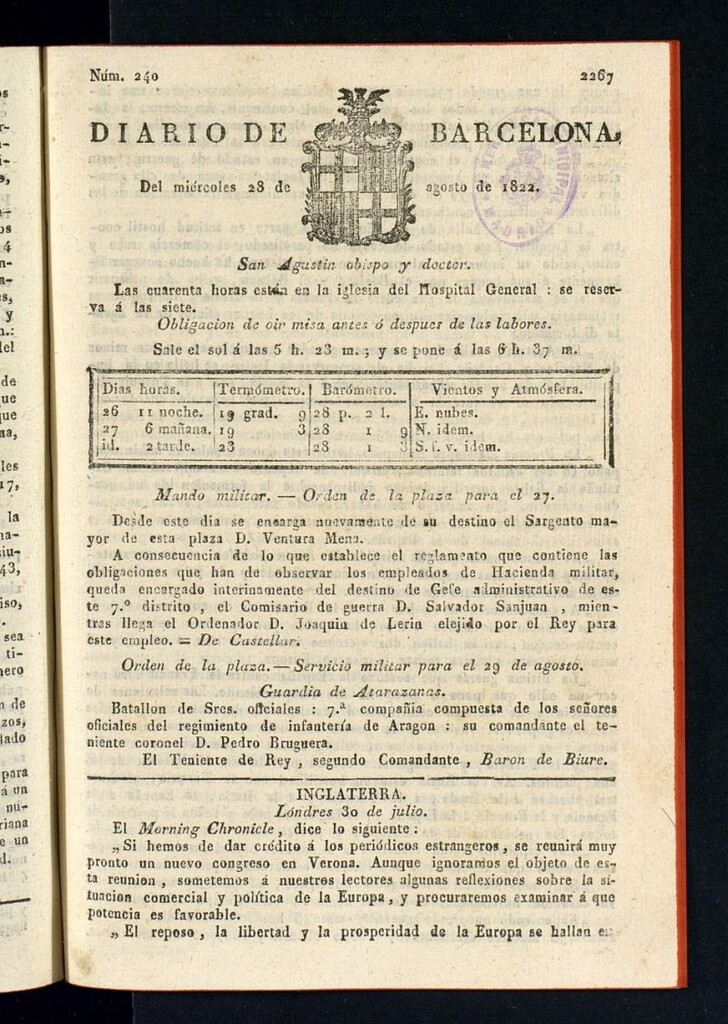 Núm. 240
2267
DIARIO DE BARCELONA,
Del miércoles 28 de agosto de 1822.
San Agustin obispo y doctor.
Las cuarenta horas están en la iglesia del Hospital General : se reser-
va á las siete.
Obligacion de oir misa antes ó despues de las labores.
Sale el sol á las 5 h. 23 m. ; y se pone á las 6 h. 37 m.
Dias horas. Termómetro. Barómetro. Vientos y Atmósfera.
26 11 noche. 19 grad. 9 28 p. 2 l. E. nubes.
27 6 mañana. 19 3 28 1 9 N. idem.
id. 2 tarde. 23 28 1 3 S. f. v. idem.
Mando militar. — Orden de la plaza para el 27.
Desde este dia se encarga nuevamente de su destino el Sargento ma-
yor de esta plaza D. Ventura Mena.
A consecuencia de lo que establece el reglamento que contiene las
obligaciones que han de observar los empleados de Hacienda militar,
queda encargado interinamente del destino de Gefe administrativo de es-
te 7.º distrito , el Comisario de guerra D. Salvador Sanjuan , mien-
tras llega el Ordenador D. Joaquin de Leria elejido por el Rey para
este empleo. = De Castellar.
Orden de la plaza. — Servicio militar para el 29 de agosto.
Guardia de Atarazanas.
Batallon de Sres. oficiales : 7.ª compañia compuesta de los señores
oficiales del regimiento de infantería de Aragon : su comandante el te-
niente coronel D. Pedro Bruguera.
El Teniente de Rey , segundo Comandante , Baron de Biure.
INGLATERRA.
Lóndres 30 de julio.
El Morning Chronicle , dice lo siguiente :
„Si hemos de dar crédito á los periódicos estrangeros , se reunirá muy
pronto un nuevo congreso en Verona. Aunque ignoramos el objeto de es-
ta reunion , sometemos á nuestros lectores algunas reflexiones sobre la si-
tuacion comercial y política de la Europa, y procuraremos examinar á que
potencia es favorable.
„ El reposo , la libertad y la prosperidad de la Europa se hallan